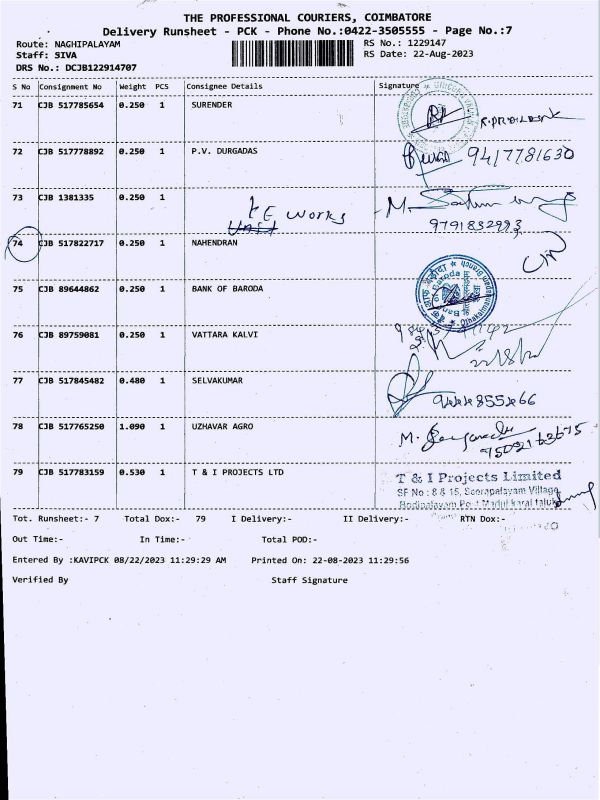 THE PROFESSIONAL COURIERS, COIMBATORE
Delivery Runsheet - PCK - Phone No.:0422-3505555 - Page No.:7
Route: NAGHIPALAYAM RS No.: 1229147
Staff: SIVA RS Date: 22-Aug-2023
DRS No.: DCJB122914707
S No Consignment No Weight PCS Consignee Details Signature
71 CJB 517785654 0.250 1 SURENDER
72 CJB 517778892 0.250 1 P.V. DURGADAS 9417781630
73 CJB 1381335 0.250 1 M.
KE Works
9791832993
74 CJB 517822717 0.250 1 NAHENDRAN
75 CJB 89644862 0.250 1 BANK OF BARODA
76 CJB 89759081 0.250 1 VATTARA KALVI
77 CJB 517845482 0.480 1 SELVAKUMAR
78 CJB 517765250 1.090 1 UZHAVAR AGRO M.
79 CJB 517783159 0.530 1 T & I PROJECTS LTD T & I Projects Limited
SF No : 8 & 15, Seerapalayam Village
Tot. Runsheet:- 7 Total Dox:- 79 I Delivery:- II Delivery:- RTN Dox:-
Out Time:- In Time:- Total POD:-
Entered By :KAVIPCK 08/22/2023 11:29:29 AM Printed On: 22-08-2023 11:29:56
Verified By Staff Signature